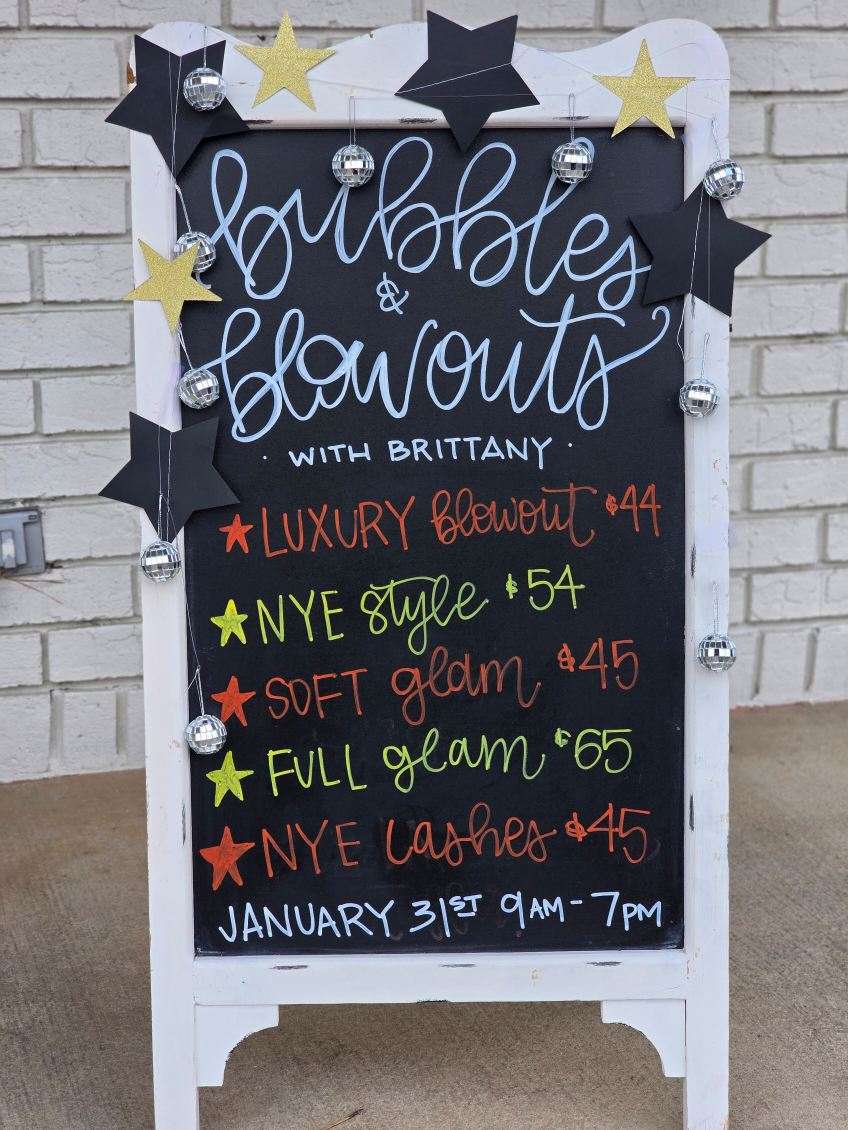 bubbles
&
blowouts
· WITH BRITTANY ·
LUXURY blowout $44
NYE style $54
SOFT glam $45
FULL glam $65
NYE lashes $45
JANUARY 31ST 9AM - 7PM